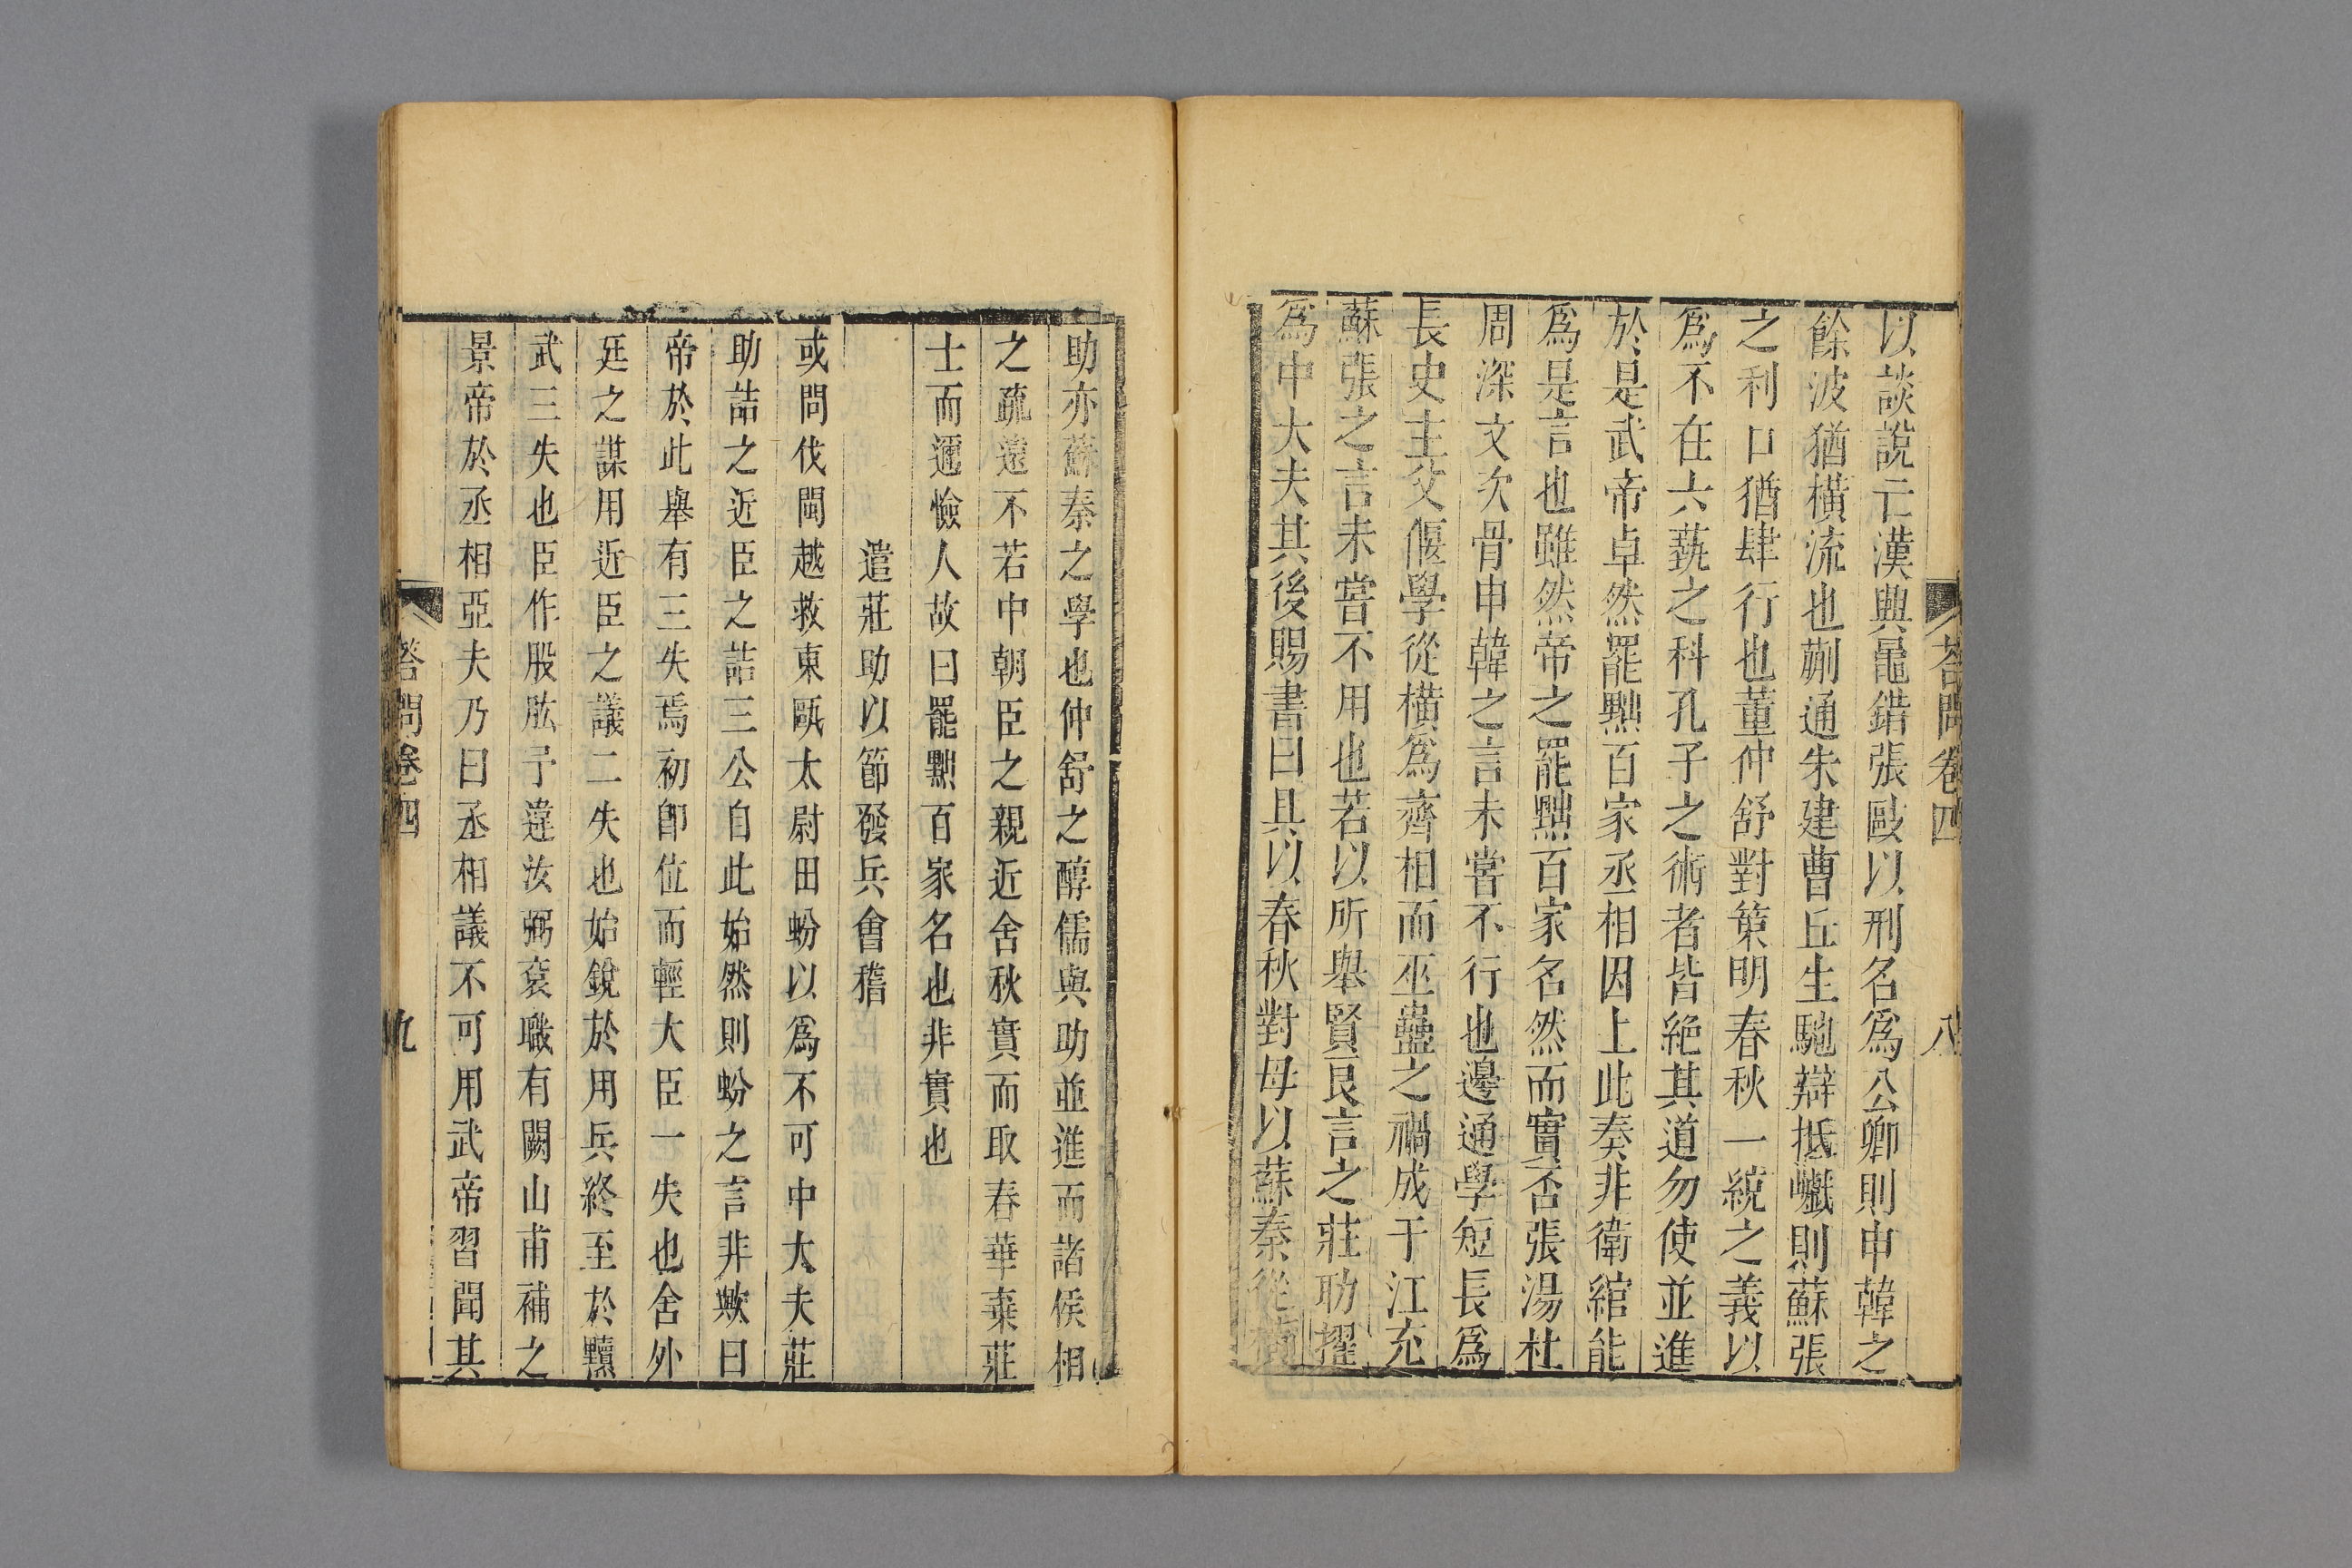 荅問卷四
八
以談說亡漢興鼂錯張歐以刑名爲公卿則申韓之
餘波猶橫流也蒯通朱建曹丘生馳辯抵巇則蘇張
之利口猶肆行也董仲舒對策明春秋一統之義以
爲不在六蓺之科孔子之術者皆絶其道勿使並進
於是武帝卓然罷黜百家丞相因上此奏非衛綰能
爲是言也雖然帝之罷黜百家名然而實否張湯杜
周深文次骨申韓之言未嘗不行也邊通學短長爲
長史主父偃學從橫爲齊相而巫蠱之禍成于江充
蘇張之言未嘗不用也若以所舉賢良言之莊助擢
爲中大夫其後賜書曰具以春秋對毋以蘇秦從橫
助亦蘇秦之學也仲舒之醇儒與助並進而諸侯相
之疏遠不若中朝臣之親近舍秋實而取春華棄莊
士而邇憸人故曰罷黜百家名也非實也
遣莊助以節發兵會稽
或問伐閩越救東甌太尉田蚡以爲不可中大夫莊
助詰之近臣之詰三公自此始然則蚡之言非歟曰
帝於此舉有三失焉初卽位而輕大臣一失也舍外
廷之謀用近臣之議二失也始銳於用兵終至於黷
武三失也臣作股肱予違汝弼袞職有闕山甫補之
景帝於丞相亞夫乃曰丞相議不可用武帝習聞其
荅問卷四
九